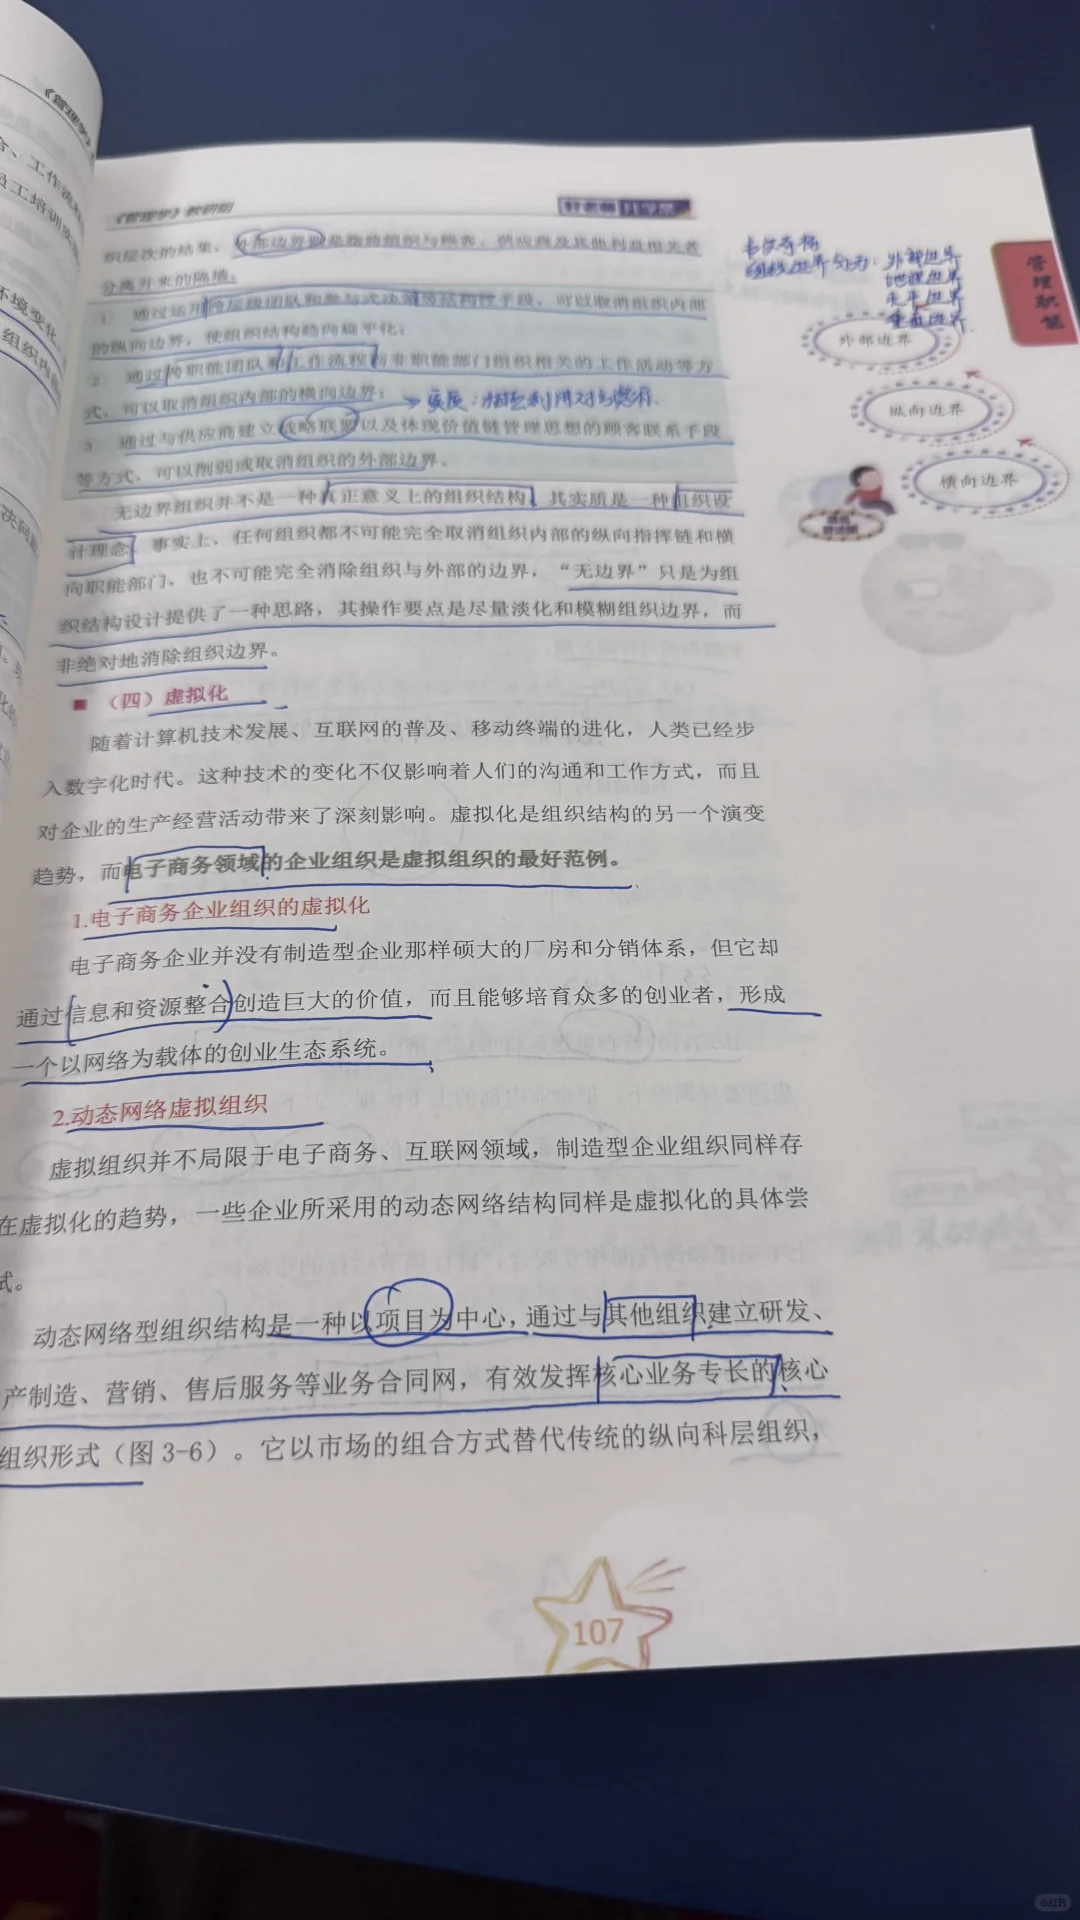 《管理学》
合、工作流程
员工培训
环境变化
组织内
《管理学》教研组
织层次的结果，外部边界则是指将组织与顾客、供应商及其他利益相关者
分离开来的隔墙。
1 通过运用跨层级团队和参与式决策等结构性手段，可以取消组织内部
的纵向边界，使组织结构趋向扁平化；
2 通过跨职能团队和工作流程而非职能部门组织相关的工作活动等方
式，可以取消组织内部的横向边界；
实质：
3 通过与供应商建立战略联盟以及体现价值链管理思想的顾客联系手段
等方式，可以削弱或取消组织的外部边界。
无边界组织并不是一种真正意义上的组织结构，其实质是一种组织设
计理念。事实上，任何组织都不可能完全取消组织内部的纵向指挥链和横
向职能部门，也不可能完全消除组织与外部的边界，“无边界”只是为组
织结构设计提供了一种思路，其操作要点是尽量淡化和模糊组织边界，而
非绝对地消除组织边界。
■（四）虚拟化
随着计算机技术发展、互联网的普及、移动终端的进化，人类已经步
入数字化时代。这种技术的变化不仅影响着人们的沟通和工作方式，而且
对企业的生产经营活动带来了深刻影响。虚拟化是组织结构的另一个演变
趋势，而电子商务领域的企业组织是虚拟组织的最好范例。
1.电子商务企业组织的虚拟化
电子商务企业并没有制造型企业那样硕大的厂房和分销体系，但它却
通过信息和资源整合创造巨大的价值，而且能够培育众多的创业者，形成
一个以网络为载体的创业生态系统。
2.动态网络虚拟组织
虚拟组织并不局限于电子商务、互联网领域，制造型企业组织同样存
在虚拟化的趋势，一些企业所采用的动态网络结构同样是虚拟化的具体尝
试。
动态网络型组织结构是一种以项目为中心，通过与其他组织建立研发、
产制造、营销、售后服务等业务合同网，有效发挥核心业务专长的核心
组织形式（图3-6）。它以市场的组合方式替代传统的纵向科层组织，
107
组织边界分为：外部边界
地理边界
水平边界
垂直边界
外部边界
纵向边界
横向边界
管理职能
小红书